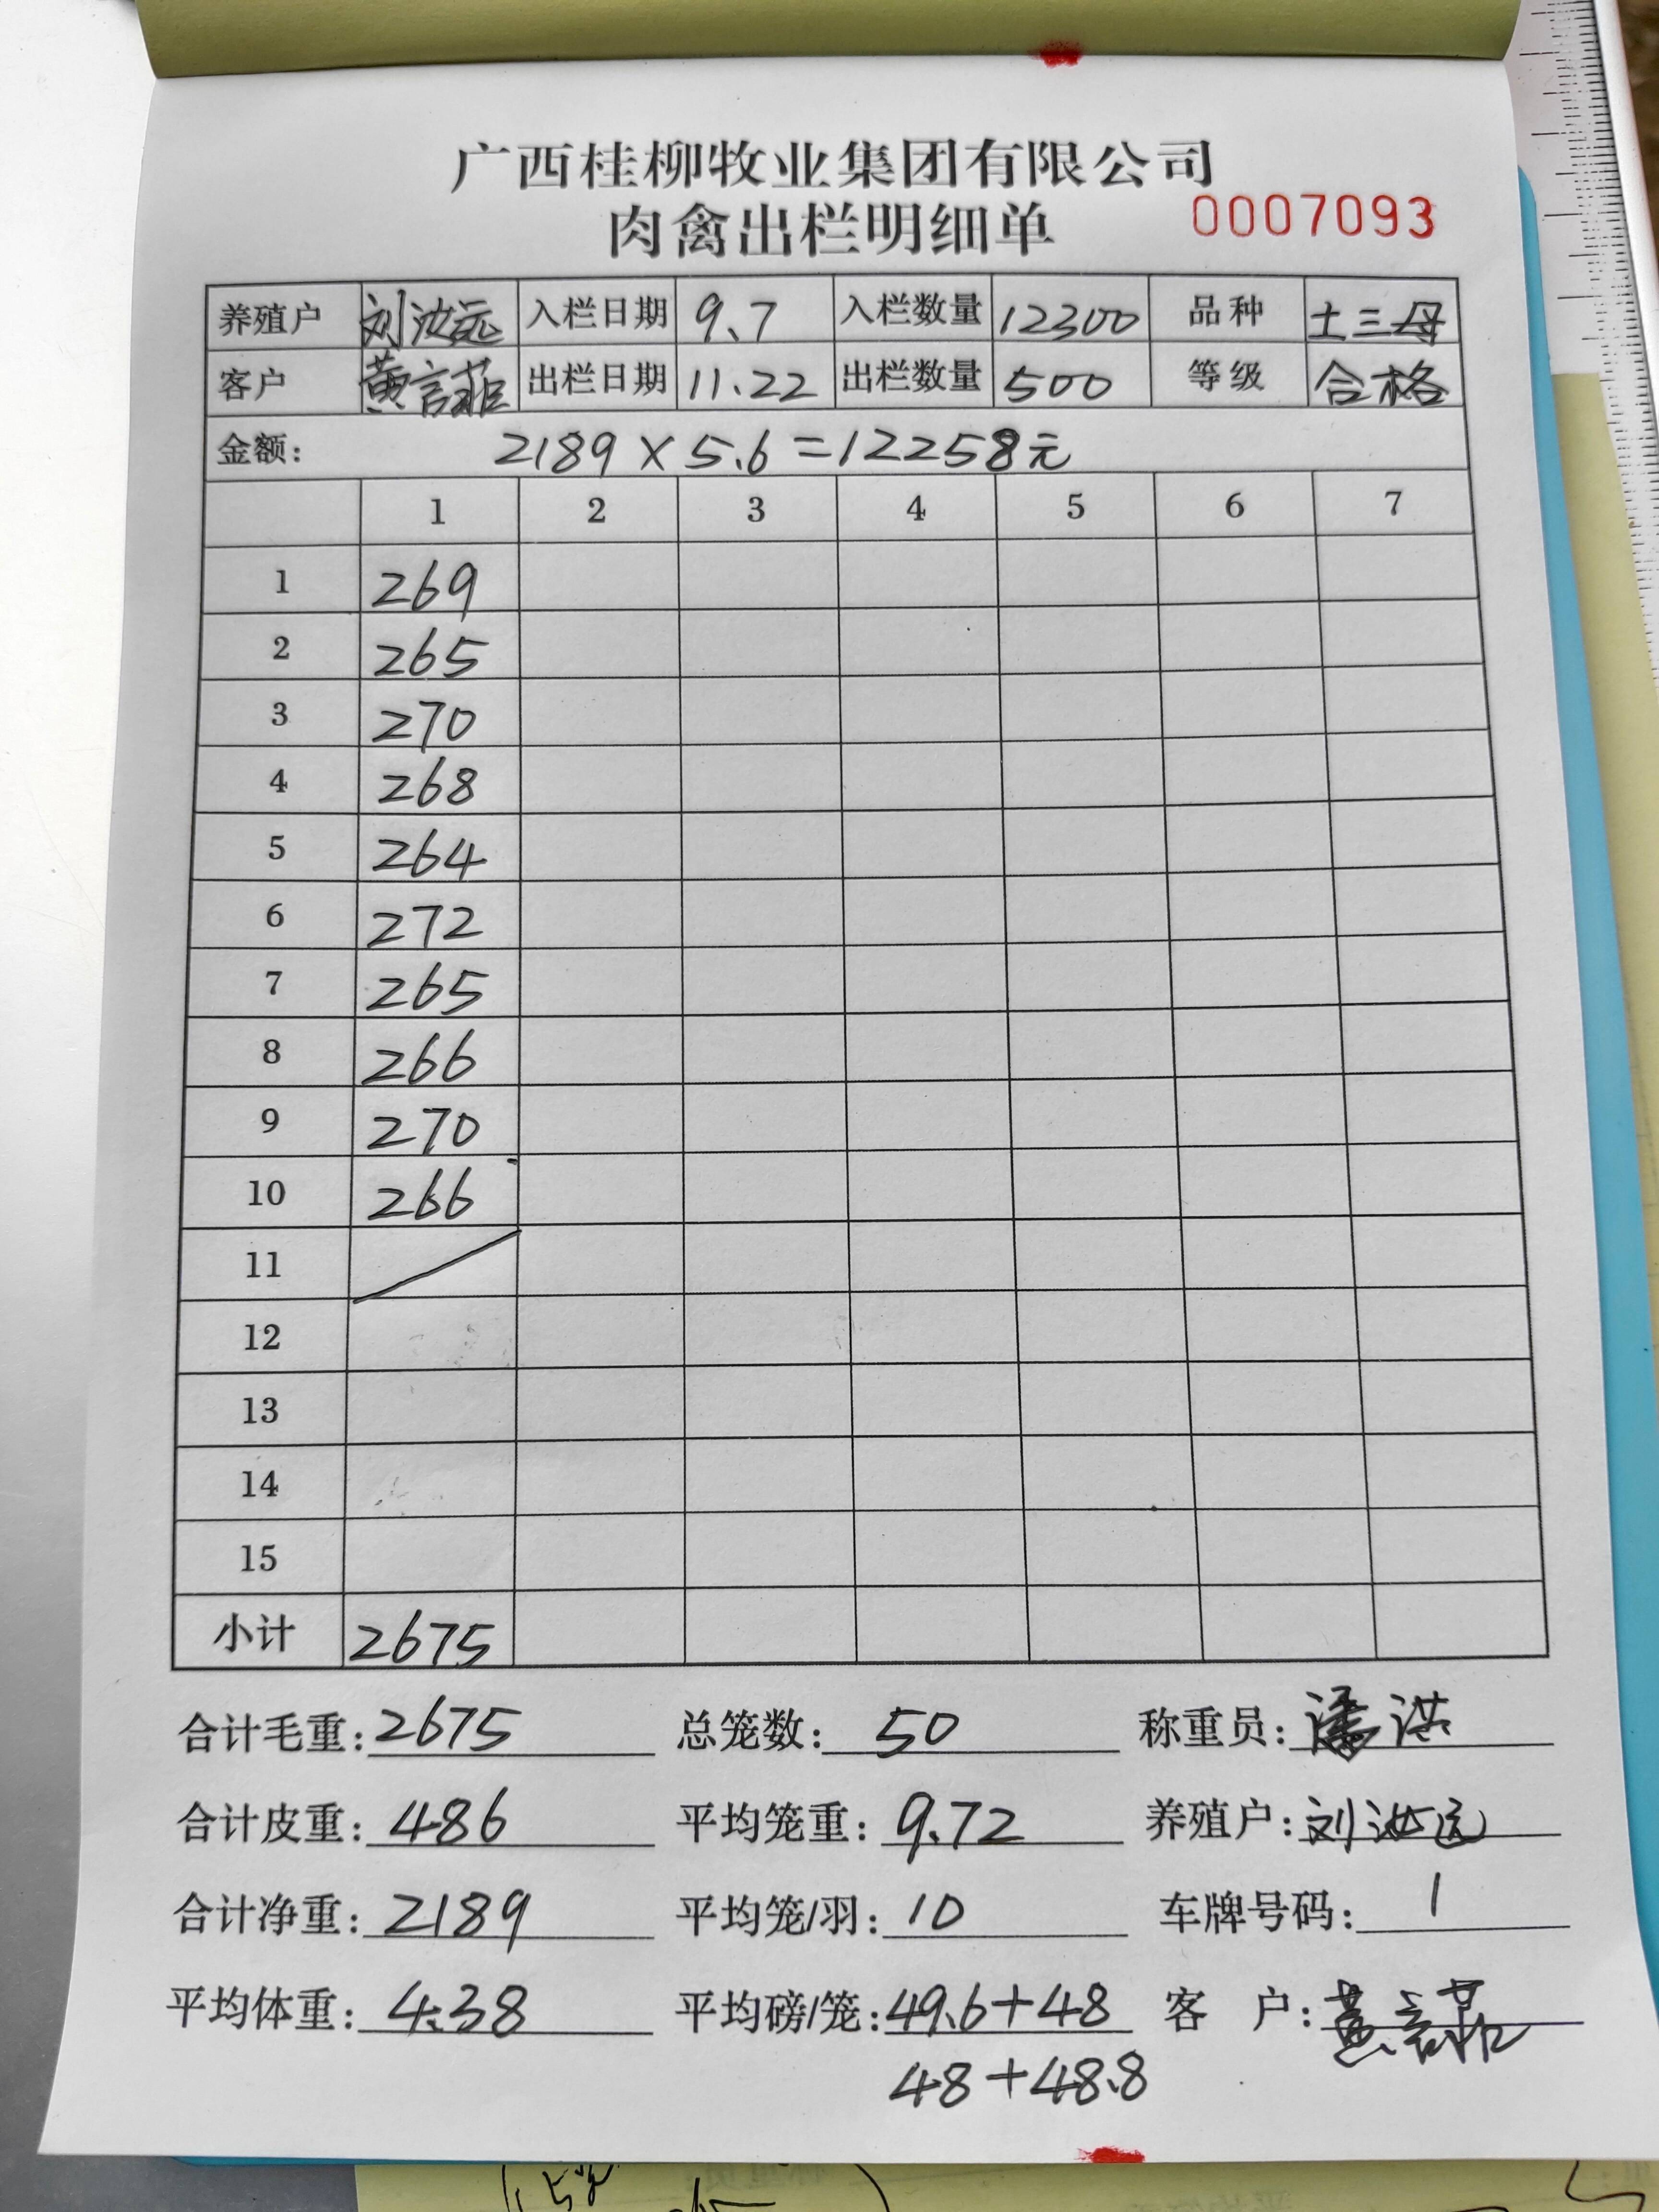 广西桂柳牧业集团有限公司
肉禽出栏明细单 0007093
养殖户 刘汝远 入栏日期 9.7 入栏数量 12300 品种 土三母
客户 黄言菲 出栏日期 11.22 出栏数量 500 等级 合格
金额: 2189×5.6=12258元
1 2 3 4 5 6 7
1 269
2 265
3 270
4 268
5 264
6 272
7 265
8 266
9 270
10 266
11
12
13
14
15
小计 2675
合计毛重: 2675 总笼数: 50 称重员: 潘洪
合计皮重: 486 平均笼重: 9.72 养殖户: 刘汝远
合计净重: 2189 平均笼/羽: 10 车牌号码: 1
平均体重: 4.38 平均磅/笼: 49.6+48 客 户: 黄言菲
48+48.8